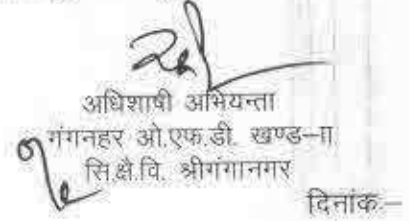 अधिशाषी अभियन्ता
गंगनहर ओ.एफ.डी. खण्ड–II
सि.क्षै.वि. श्रीगंगानगर
दिनांक:–